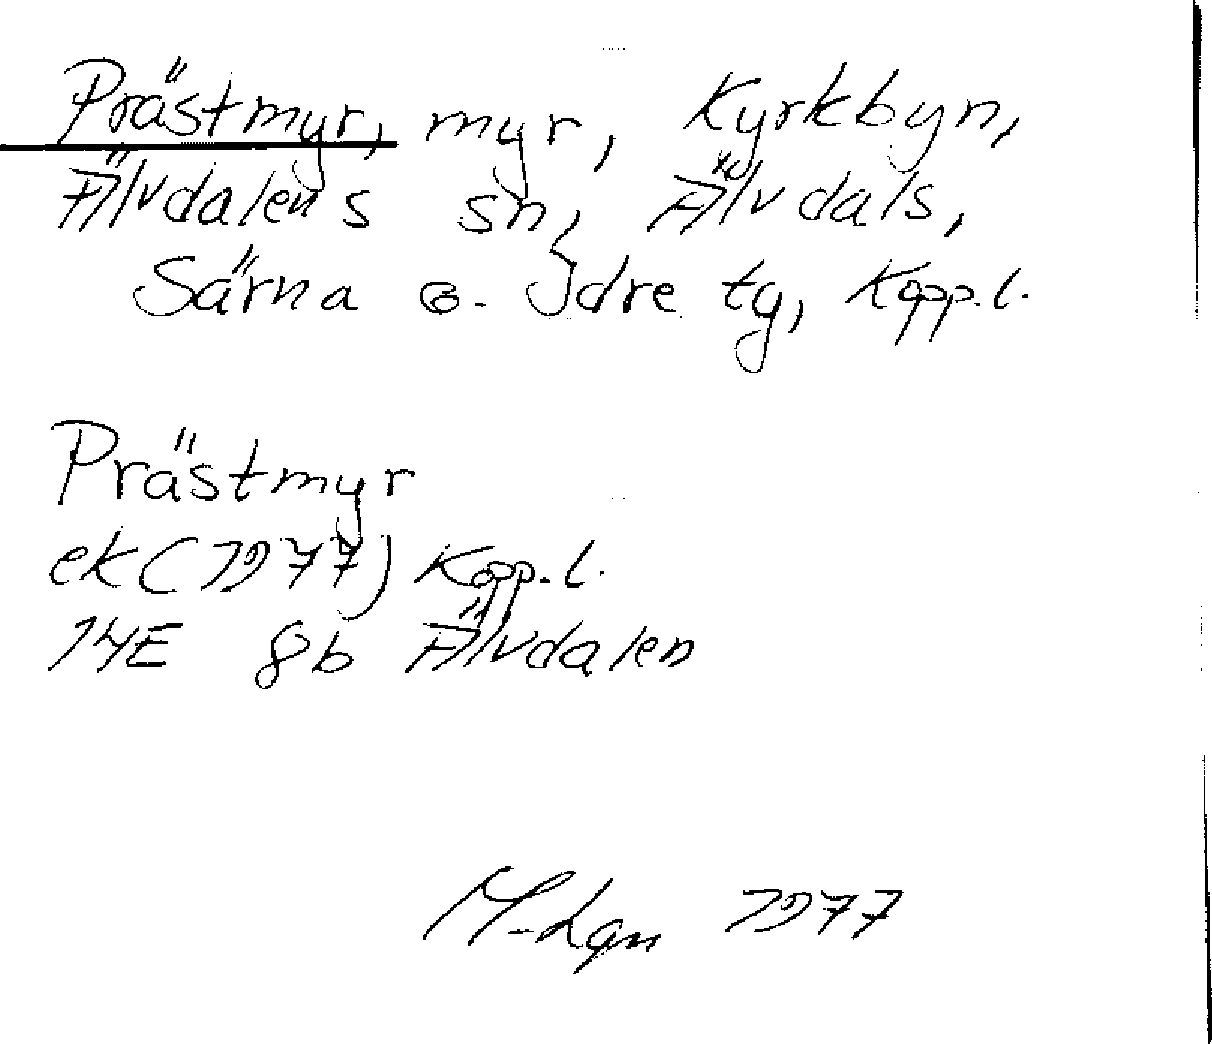 Prästmyr, myr, Kyrkbyn,
Älvdalens sn, Älvdals,
Särna o. Idre tg, Kopp.l.
Prästmyr
ek (1977) Kopp.l.
14E 8b Älvdalen
1977